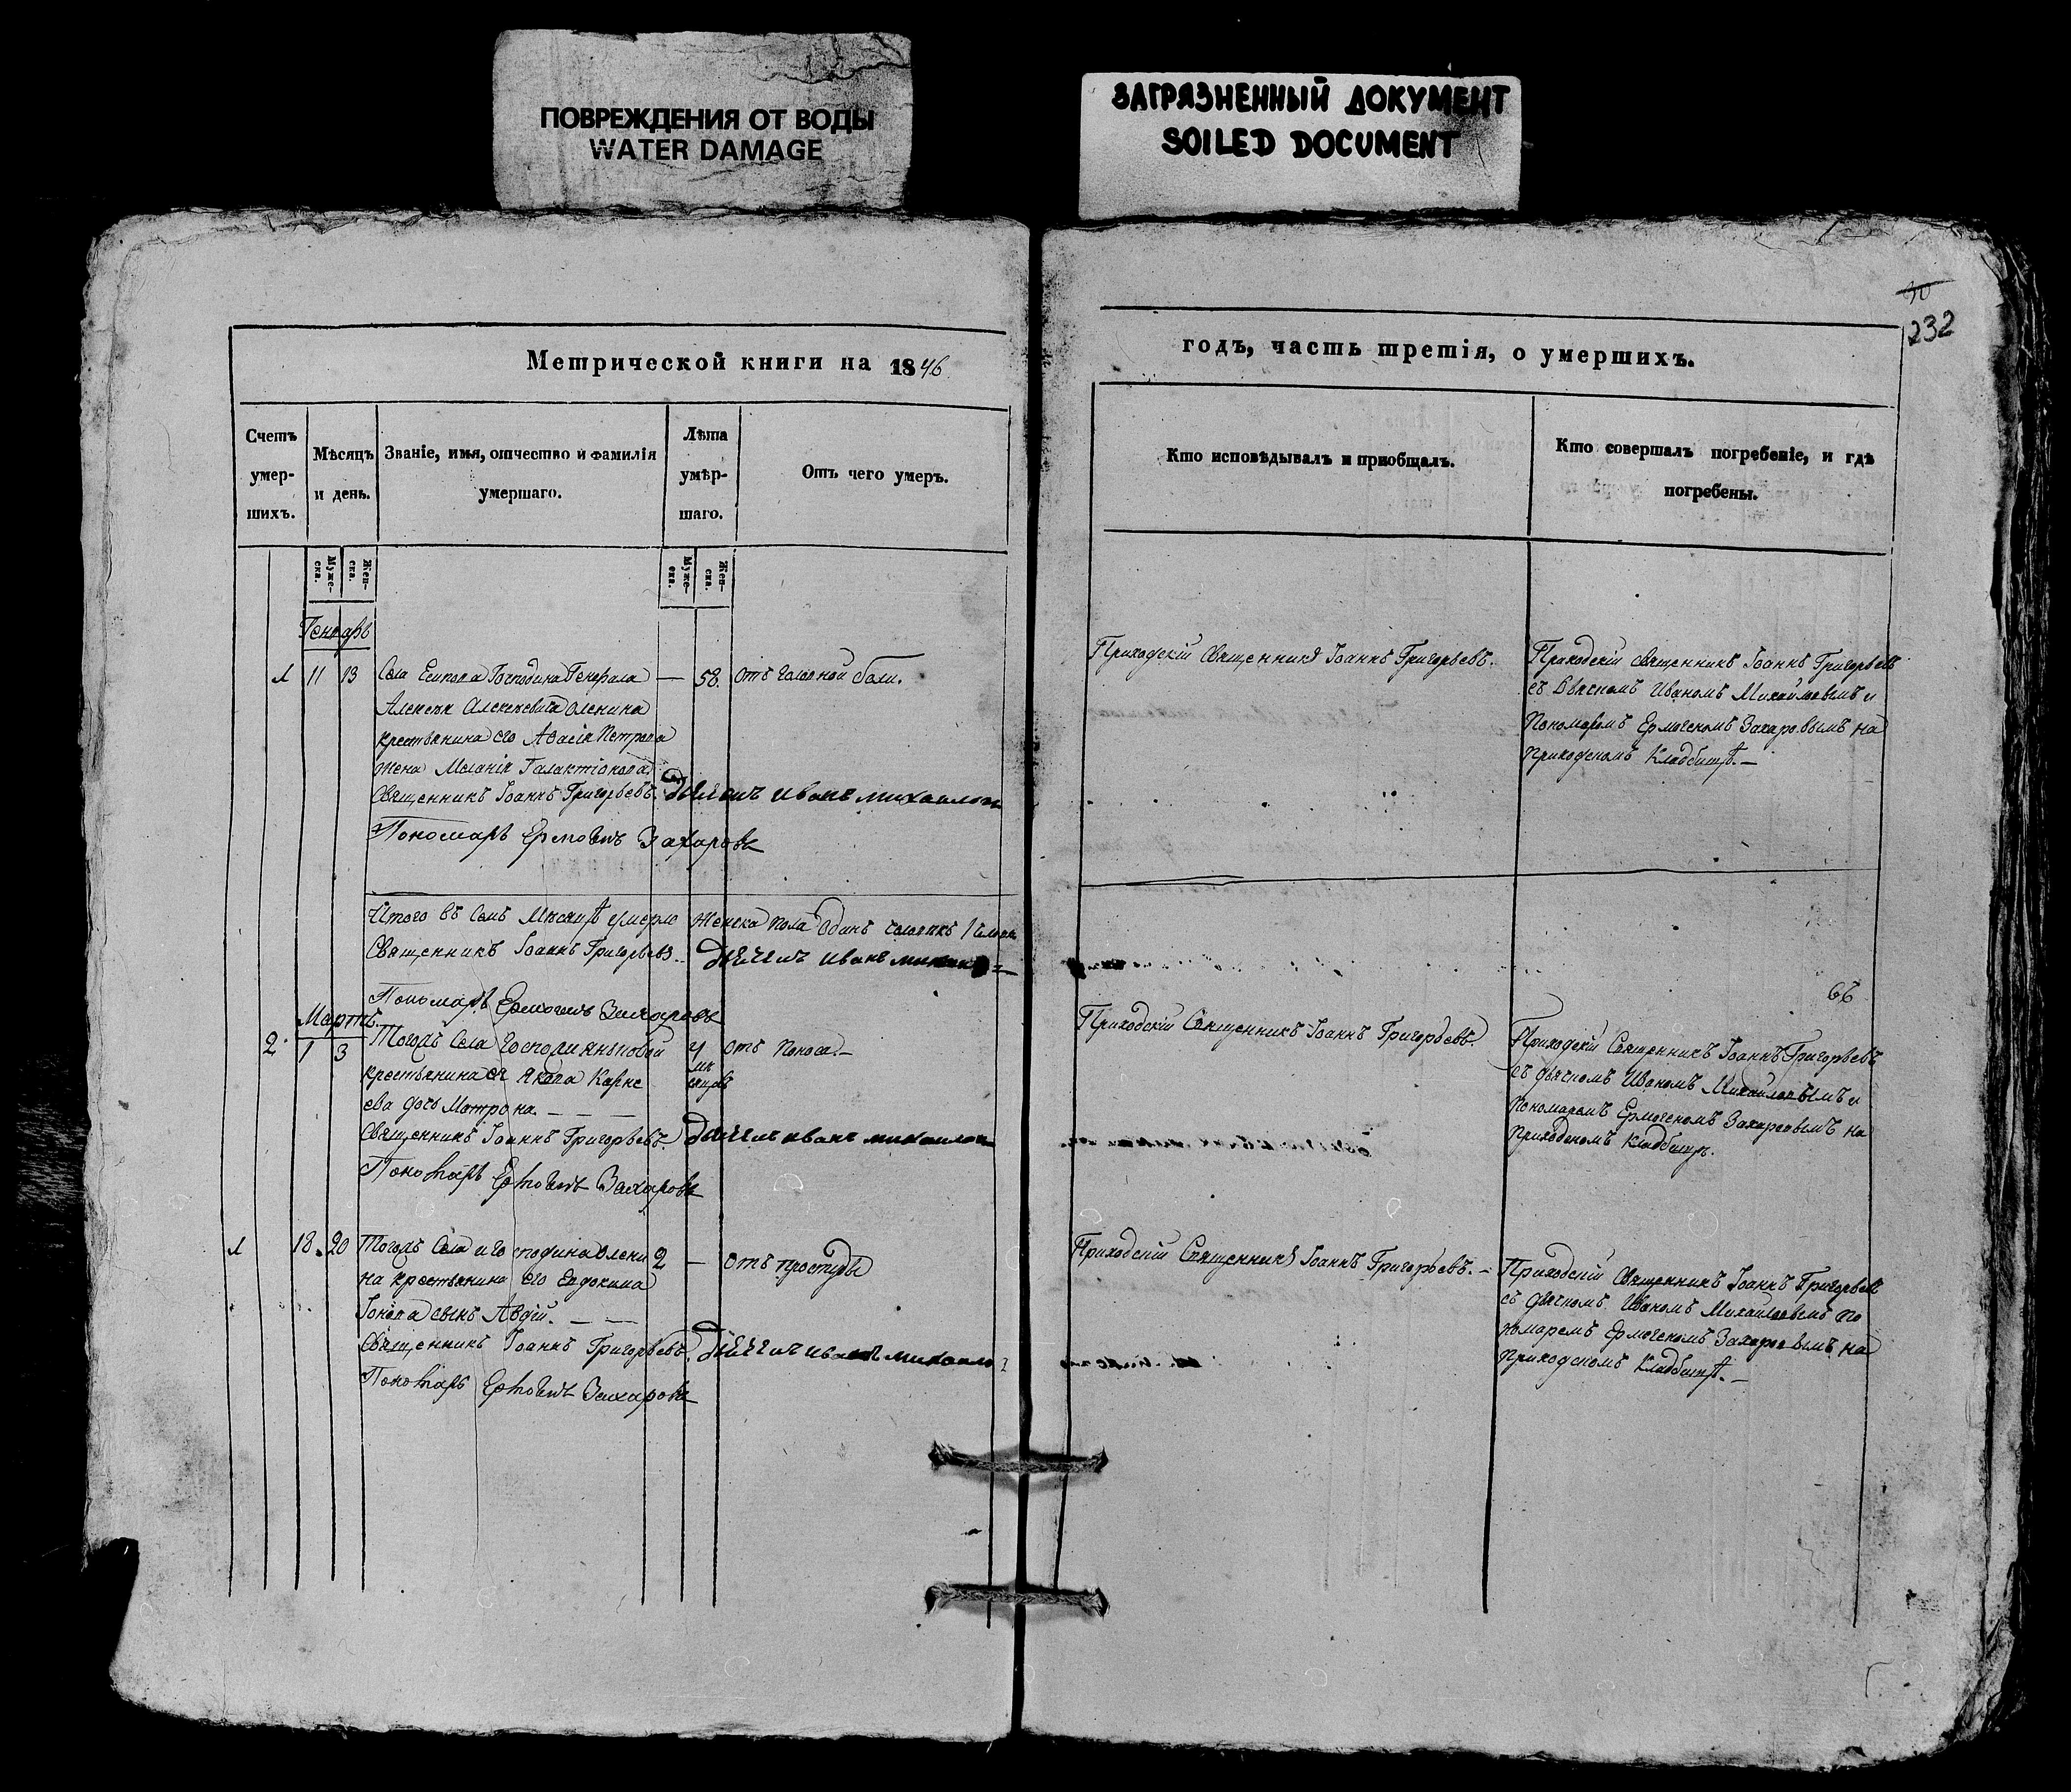 ПОВРЕЖДЕНИЯ ОТ ВОДЫ
WATER DAMAGE
ЗАГРЯЗНЕННЫЙ ДОКУМЕНТ
SOILED DOCUMENT
232
Метрической книги на 1846
годъ, часть третія, о умершихъ.
Счетъ умер-шихъ.
Мѣсяцъ и день.
Званіе, имя, отчество и фамилія умершаго.
Лѣта умѣр-шаго.
Отъ чего умеръ.
Кто исповѣдывалъ и пріобщалъ.
Кто совершалъ погребеніе, и гдѣ погребены.
Муже-ска.
Жен-ска.
Муже-ска.
Жен-ска.
Генварь
1 11 13 Села Господина Генерала — 58. отъ головной боли.
Алексѣя Алексѣевича Оленина
крестьянина его Петрова
жена Меланія Галактіонова
Священникъ Іоаннъ Григорьевъ. Дьячекъ Иванъ Михаиловъ
Пономарь Ермогенъ Захаровъ
Приходскій Священникъ Іоаннъ Григорьевъ.
Приходскій священникъ Іоаннъ Григорьевъ
съ Дьячкомъ Иваномъ Михайловымъ и
Пономаремъ Ермогеномъ Захаровымъ на
приходскомъ Кладбищѣ. —
Итого въ семъ Мѣсяцѣ умерло женска пола одинъ человѣкъ 1
Священникъ Іоаннъ Григорьевъ. Дьячекъ Иванъ
Пономарь Ермогенъ Захаровъ
Мартъ.
2. 1 3 Тогожъ Села отъ поноса. —
крестьянина ея Якова
ева дочь Матрона. — — —
Священникъ Іоаннъ Григорьевъ. Дьячекъ Иванъ Михаиловъ
Пономарь Ермогенъ Захаровъ
Приходскій Священникъ Іоаннъ Григорьевъ.
Приходскій Священникъ Іоаннъ Григорьевъ
съ дьячкомъ Иваномъ Михайловымъ и
Пономаремъ Ермогеномъ Захаровымъ на
приходскомъ кладбищѣ.
1 18 20 Тогожъ Села и господина Олени 2 — отъ простуды
на крестьянина его Евдокима
сынъ Авдій. — —
Священникъ Іоаннъ Григорьевъ. Дьячекъ Иванъ Михаило
Пономарь Ермогенъ Захаровъ
Приходскій Священникъ Іоаннъ Григорьевъ. —
Приходскій Священникъ Іоаннъ Григорьевъ
съ дьячкомъ Иваномъ Михайловымъ по
номаремъ Ермогеномъ Захаровымъ на
Приходскомъ Кладбищѣ. —